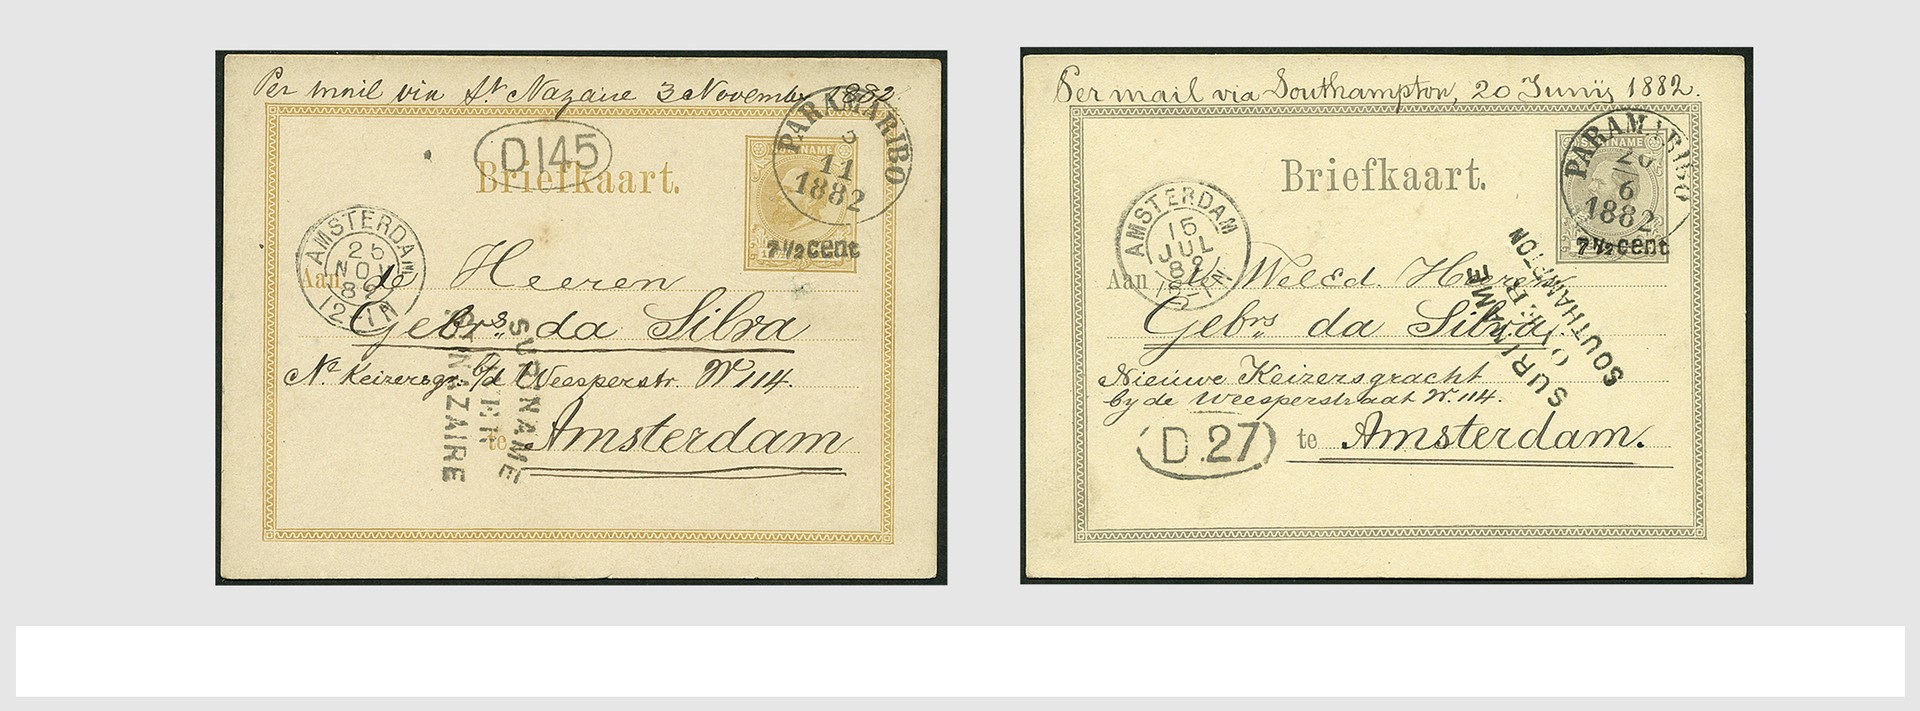 Per mail via St. Nazaire 3 Novembr 1882.
PARAMARIBO
3
11
1882
D.145
Briefkaart.
SURINAME
7 1/2 cent
AMSTERDAM
25
NOV
82
12-1N
Aan de Heeren
Gebrs. da Silva
Ne Keizersgr. b/d Weesperstr. No 114.
te Amsterdam
SURINAME
OVER
ST. NAZAIRE
Per mail via Southampton, 20 Junij 1882.
PARAMARIBO
20
6
1882
Briefkaart.
SURINAME
7 1/2 cent
AMSTERDAM
15
JUL
82
Aan de WelEd. Heeren
Gebrs. da Silva
Nieuwe Keizersgracht
by de Weesperstraat No. 114.
D.27
te Amsterdam.
SURINAME
OVER
SOUTHAMPTON